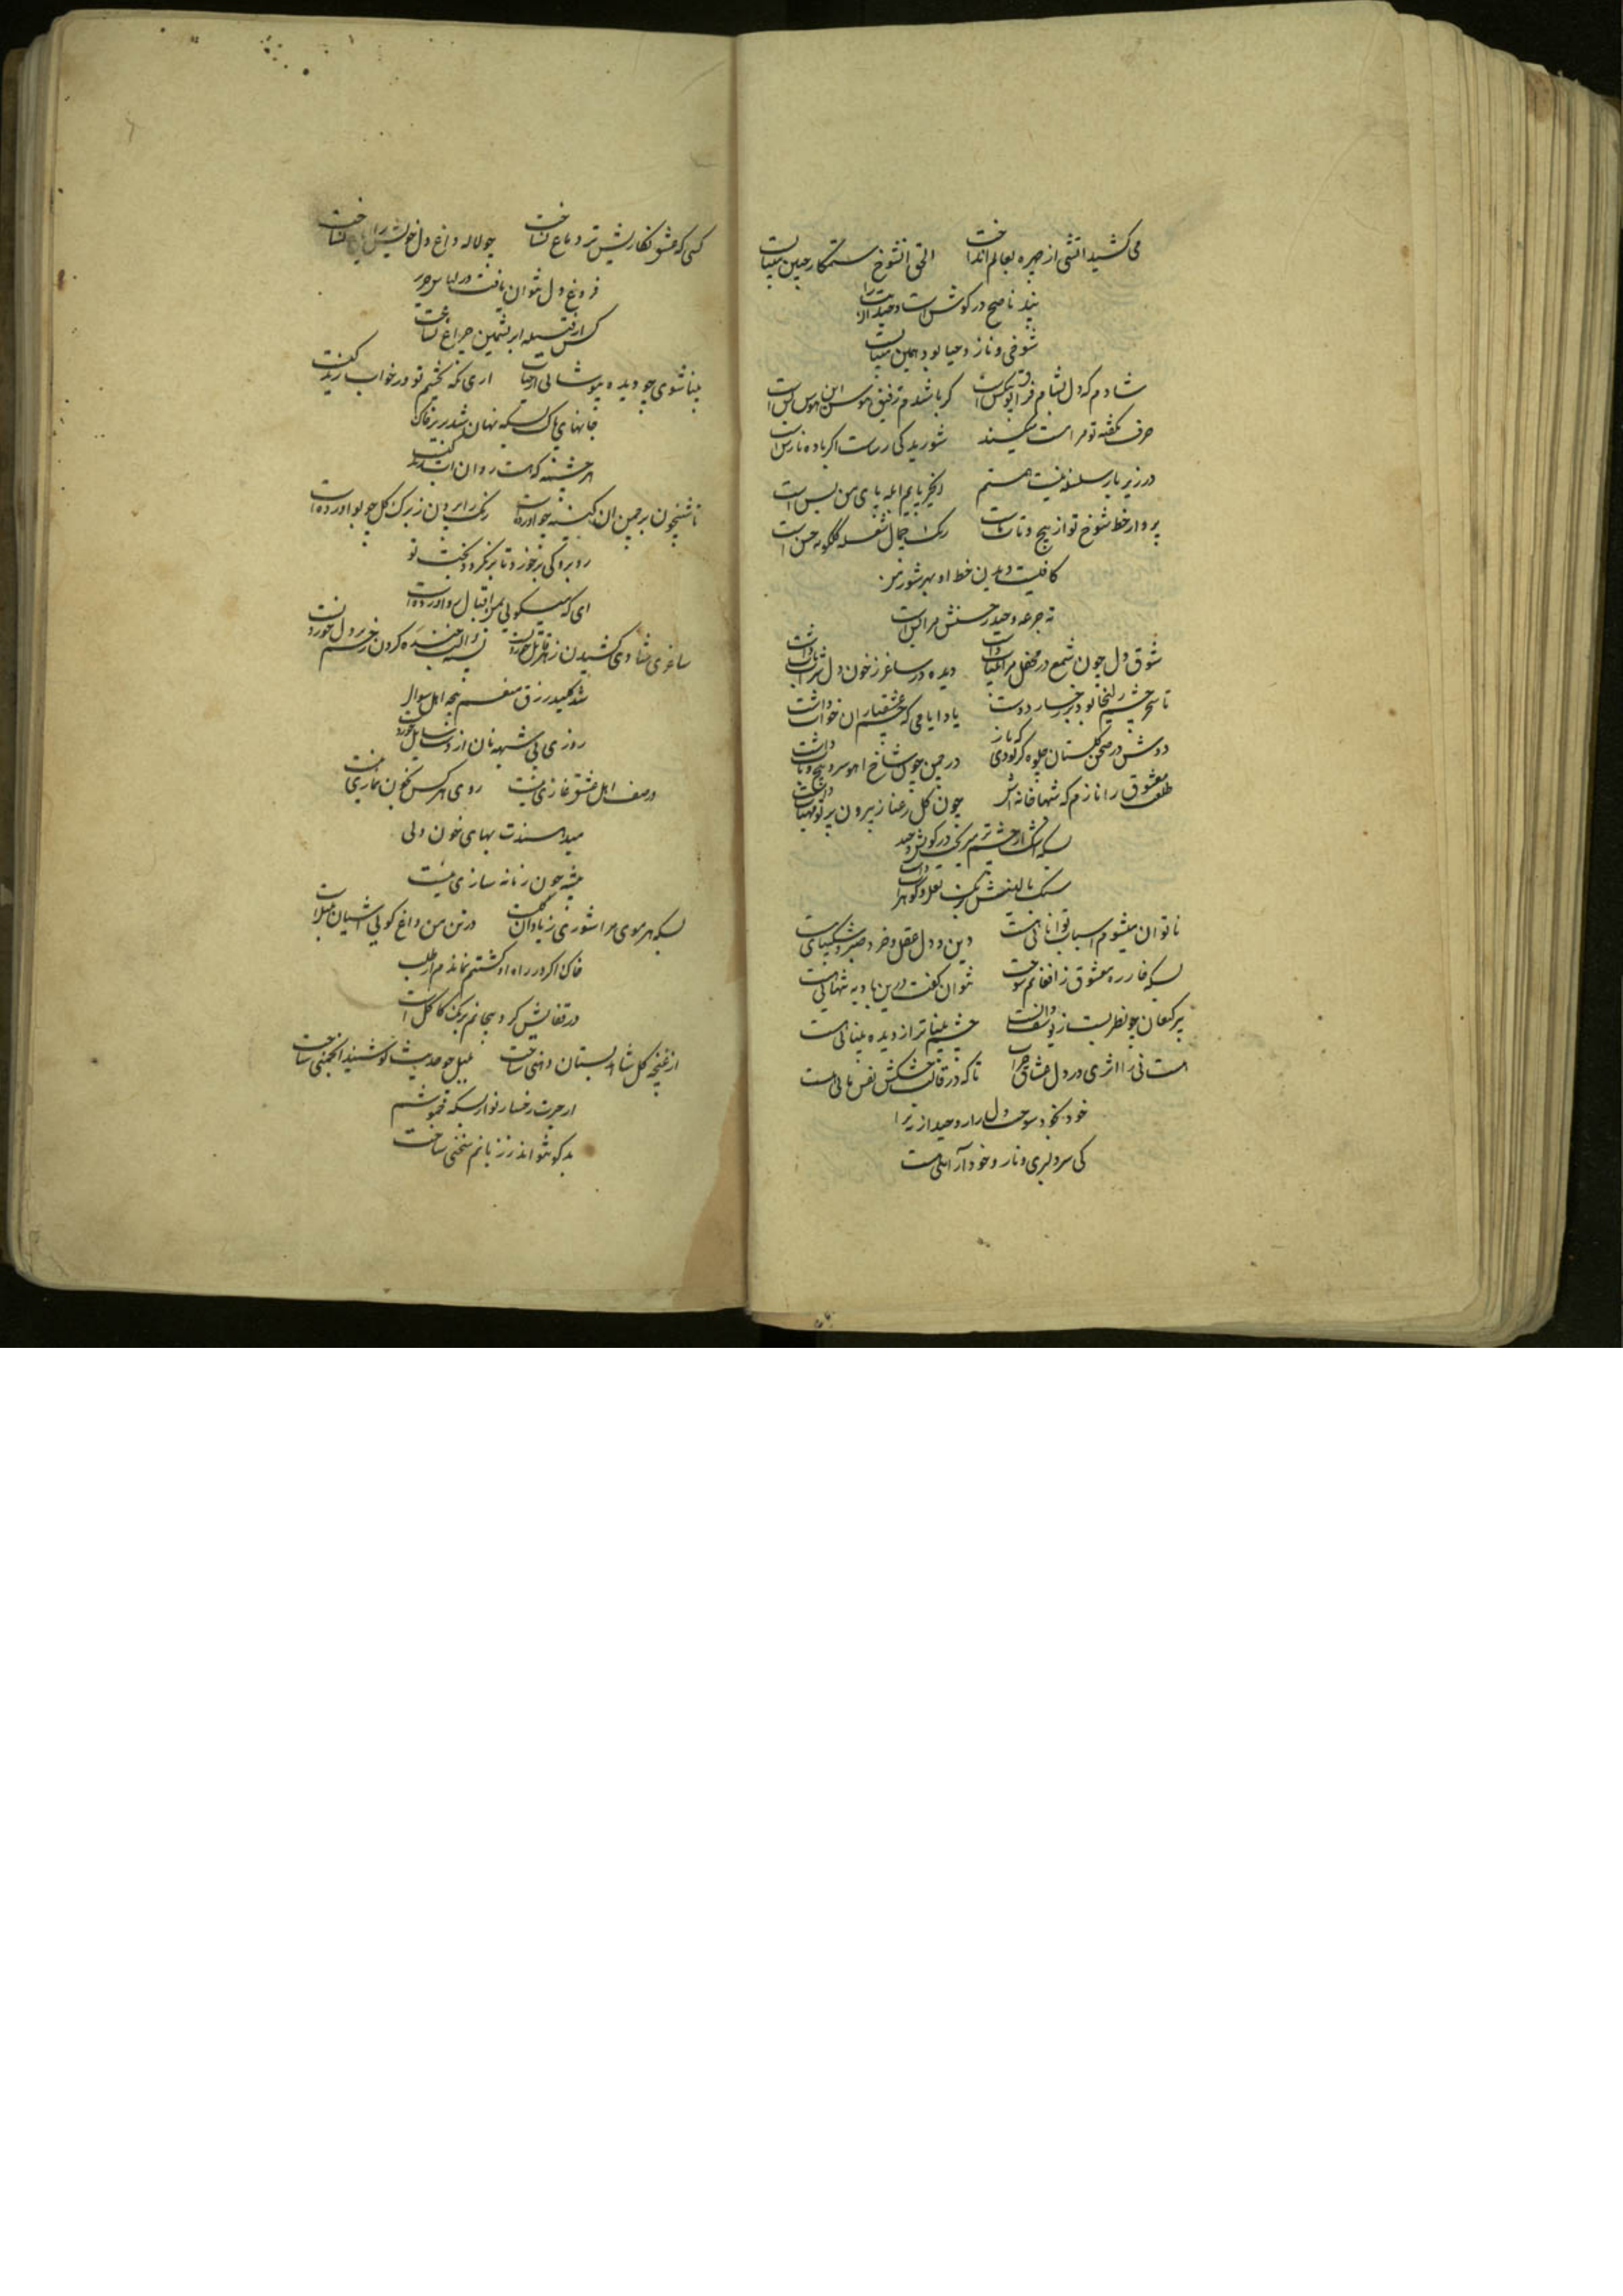 می کشید اتشی از چهره بعالم انداخت الحق انشوخ ستمکار چنین میبایست
پند ناصح در کوش است وحید را
شوخی و ناز و حیا بود همین میبایست
شادم که دل بشام فراق تو بیکس است کر باشدم رفیق هوس این هوس بس است
حرف نکفته تو مرا مست میکند شوریدکی رساست اکر باده نارس است
در زیر بار سلسله نیستم زنجیر پایم ابله پای من بس است
پرواز خط شوخ تو از پیچ و تاب رنک جمال شعله کلکونه خس است
کافیست دیدن خط او بهر شور من
ته جرعه وحید ز حسنش مرا بس است
شوق دل چون شمع در محفل مرا بیتاب داشت دیده در ساغر ز خون دل شراب ناب داشت
تا سحر چشم زلیخا بود بر رخسار دوست یاد ایامی که چشم عشقبازان خواب داشت
دوش در صحن کلستان جلوه کر بودی که باز در چمن چون شاخ اهو سرو پیچ و تاب داشت
معشوق را نازم که شبها خانه اش چون کل رعنا ز بیرون پرتو مهتاب داشت
بسکه اشک از چشم تر میریخت در کویش وحید
سنک بالینش برنک لعل و کوهر اب داشت
ناتوان میشوم اسباب توانائی هست دین و دل عقل و خرد صبر و شکیبائی هست
بسکه خار ره معشوق ز افغانم سوخت نتوان کفت درین بادیه تنهائی هست
پیر کنعان چو نظر بست ز یوسف دانست چشم بیناتر از دیده بینائی هست
هست نی را اثری در دل عشاق خراب تا که در قالب خشکش نفس نائی هست
خود بخود سوخت دل زار وحید از تیر ا
کی سر دلبری و ناز و خود آرائی هست
کسی که عشق نکاریش تر دماغ نساخت چو لاله داغ دل خویش را ایاغ نساخت
فروغ دل نتوان یافت در لباس حریر
کس از فتیله ابریشمین چراغ نساخت
بینا شوی چو دیده بپوشانی از حیات اری نکه بچشم تو در خواب زندکیست
جانهای پاک بسکه نهان شد بزیر خاک
هر چشمه که هست روان اب زندکیست
تا شبیخون بر چمن ان کینه جو اورده است رنک را بیرون ز برک کل چو بو اورده است
روبرو کی برخورد تا برنکردد بخت تو
ای که میکوئی بمن اقبال رو اورده است
ساغری شادی کشیدن زهر قاتل خوردنست
شد کلید رزق منعم پنجه اهل سوال
روزی بی شبهه نان از دست سایل خوردنست
در صف اهل عشق غازی نیست روی هر کس بخون نمازی نیست
میدهندت بهای خون ولی
پیشه چون زمانه سازی نیست
بسکه هر موی مرا شوری ز یاد ان کلست در تن من داغ کوئی اشیان بلبلست
خاک اکر در راه او کشتم نماندم از طلب
در قفایش کرد بیجانم برنک کاکل است
از غنچه کل شاهد بستان دهنی ساخت بلبل چو حدیث تو شنید انجمنی ساخت
از حیرت رخسار تو از بسکه خموشم
بدکو نتواند ز زبانم سخنی ساخت